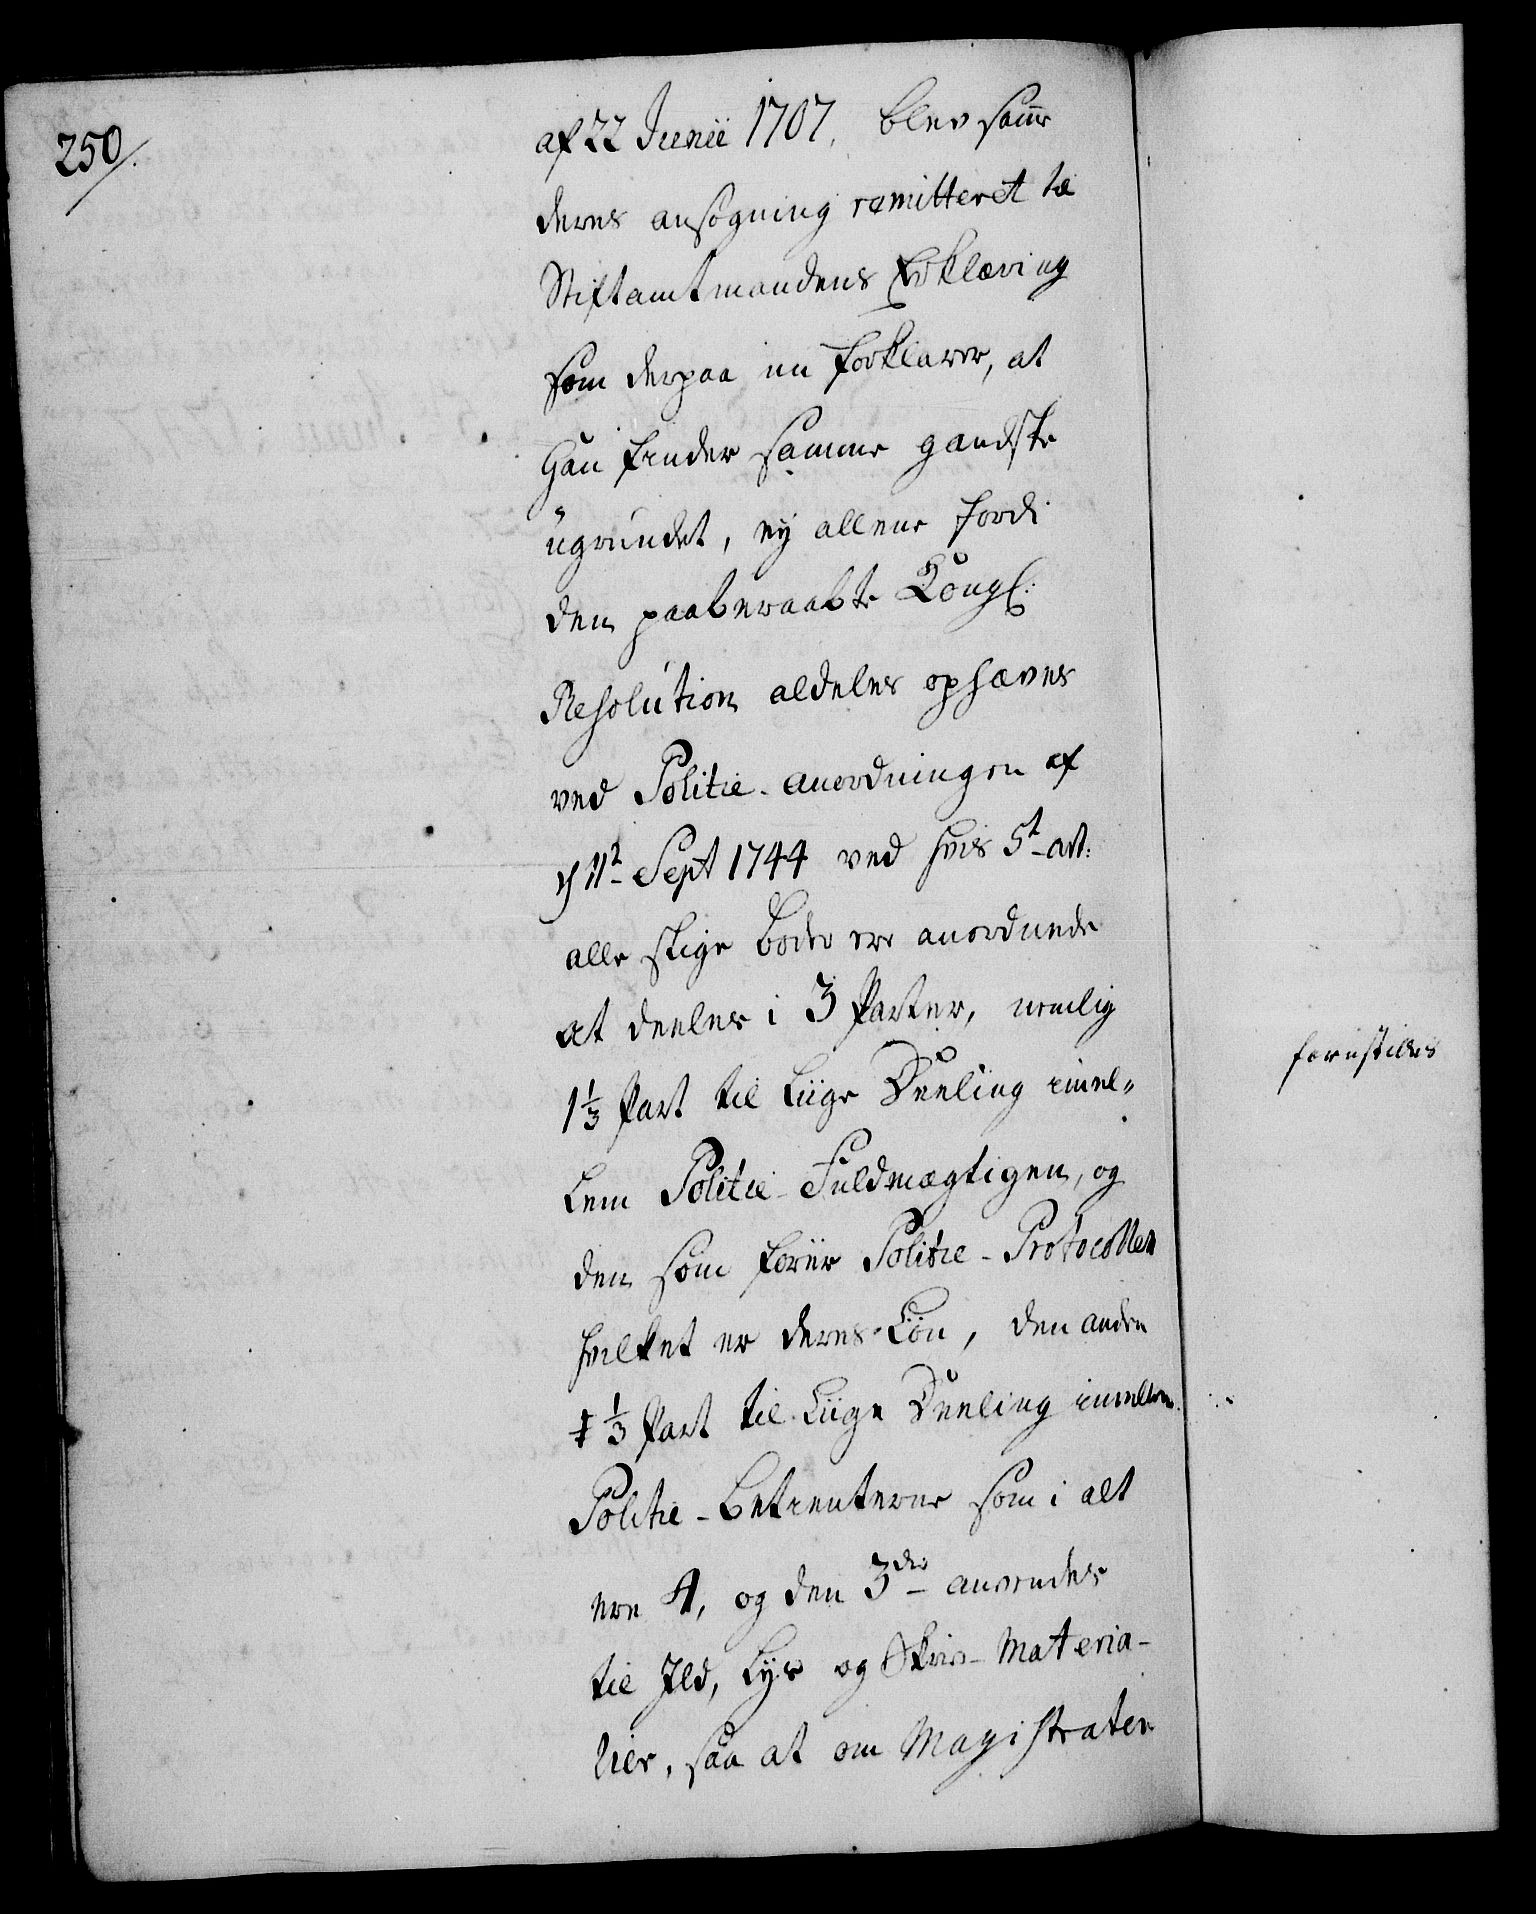 250/.
af 22 Junii 1707. blev samme
deres ansøgning remitteret til
Stiftamtmandens Erklæring
som derpaa nu forklarer, at
Han finder samme gandske
ugrundet, ey allene fordi
den paaberaabte Kongl:
Resolution aldeles ophæves
ved Politie-anordningen af
11 Sept 1744 ved hvis 5t art:
alle slige bøder ere anordnede
at deeles i 3 Parter, nemlig
1 1/3 Part til Liige Deeling imel„
lem Politie-Fuldmægtigen, og
den som fører Politie-Protocollen
hvilket er deres Løn, den anden
1/3 Part til Liige Deeling imellem
Politie-betienterne som i alt
ere 4, og den 3die anvendes
til Ild, Lys og Skriv-Materia-
lier, saa at om Magistraten
forestilles